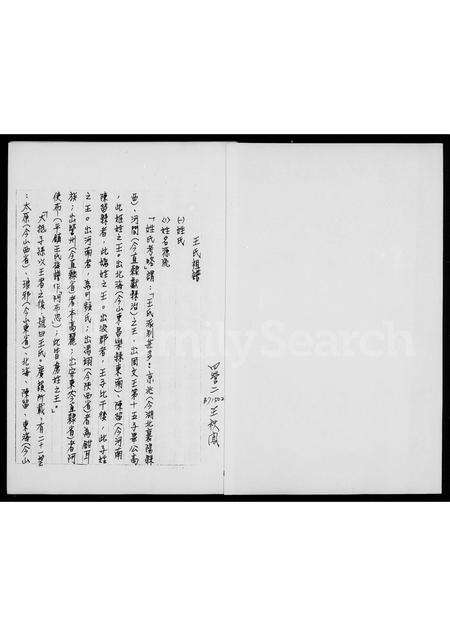 四營二
王秋風
王氏祖譜
(一)姓氏
(1)姓名源流
「姓氏考略」謂:「王氏派別甚多:京兆(今湖北襄陽縣
西)、河間(今直隸獻縣治)之王,出周文王第十五子畢公高
,此姬姓之王。出北海(今山東昌樂縣東南)、陳留(今河南
陳留縣)者,此媯姓之王。出汲郡者,王子比干後,此子姓
之王。出河南者,為可頻氏;出馮翊(今陝西省)者為鉗耳
族;出營州(今直隸省)者本高麗;出安東(今直隸省)者阿
使布(平鎮王氏族譜作「阿布思」);此皆虜姓之王。」
「大抵子孫以王者之後,號曰王氏。廣韻所載,有二十一望
:太原(今山西省)、琅邪(今山東省)、北海、陳留、東海(今山
FamilySearch